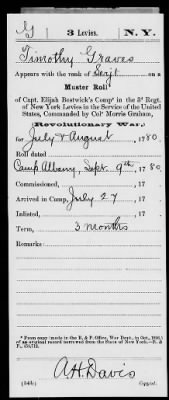 G 3 Levies. N.Y.
Timothy Graves
Appears with the rank of Serjt on a
Muster Roll*
of Capt. Elijah Bostwick's Comp'y in the 3d Regt.
of New York Levies in the Service of the United
States, Commanded by Col' Morris Graham,
Revolutionary War,
for July & August, 1780.
Roll dated
Camp Albany, Sept. 9th, 1780.
Commissioned, , 17
Arrived in Camp, July 27, 17
Inlisted, , 17
Term, 3 months
Remarks:
* From copy (made in the R. & P. Office, War Dept., in Oct.,
of an original record borrowed from the State of New York.—R. &
A.H. Davis
Copyist.